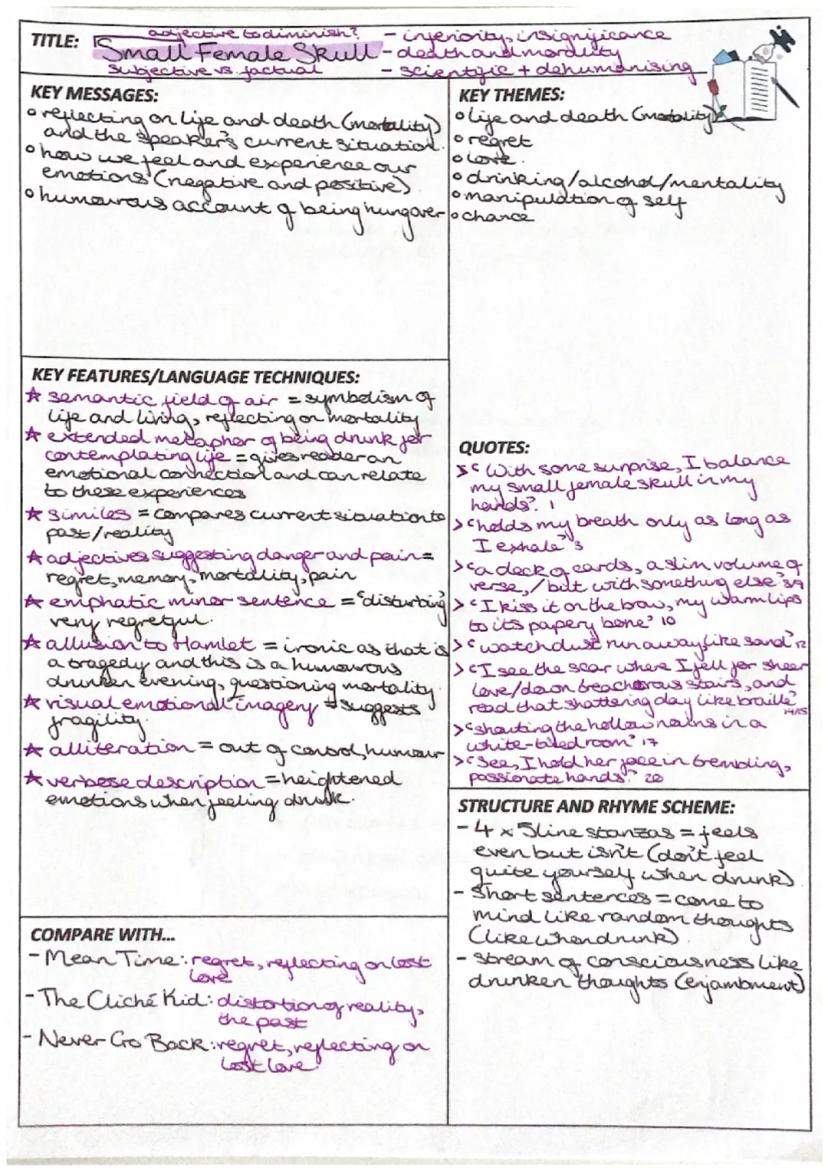 adjective to diminish? – inferiority, insignificance
TITLE: Small Female Skull – death and morality
subjective vs. factual – scientific + dehumanising
KEY MESSAGES:
o reflecting on life and death (mortality)
and the speaker's current situation.
o how we feel and experience our
emotions (negative and positive)
o humourous account of being hungover
KEY THEMES:
o life and death (mortality)
o regret
o love
o drinking/alcohol/mentality
o manipulation of self
o chance
KEY FEATURES/LANGUAGE TECHNIQUES:
☆ semantic field of air = symbolism of
life and living, reflecting on mortality
☆ extended metaphor of being drunk for
contemplating life = gives reader an
emotional connection and can relate
to these experiences
☆ similes = compares current situation to
past/reality
☆ adjectives suggesting danger and pain =
regret, memory, mortality, pain
☆ emphatic minor sentence = 'disturbing'
very regretful.
☆ allusion to Hamlet = ironic as that is
a tragedy and this is a humourous
drunken evening, questioning mortality
☆ visual emotional imagery = suggests
fragility.
☆ alliteration = out of control, humour
☆ verbose description = heightened
emotions when feeling drunk.
QUOTES:
> 'With some surprise, I balance
my small female skull in my
hands'. 1
> 'holds my breath only as long as
I exhale' 3
> 'a deck of cards, a slim volume of
verse, / but with something else'
> 'I kiss it on the brow, my warm lips
to its papery bone' 10
> 'watch dust run away like sand' 12
> 'I see the scar where I fell for sheer
love/down treacherous stairs, and
read that shattering day like braille' 14/15
> 'shouting the hollow nouns in a
white-tiled room' 17
> 'See, I hold her face in trembling,
passionate hands.' 20
STRUCTURE AND RHYME SCHEME:
– 4 x 5 line stanzas = feels
even but isn't (don't feel
quite yourself when drunk)
– Short sentences = come to
mind like random thoughts
(like when drunk)
– stream of consciousness like
drunken thoughts (enjambment)
COMPARE WITH...
– Mean Time: regret, reflecting on lost
love
– The Cliché Kid: distortion of reality,
the past
– Never Go Back: regret, reflecting on
lost love.